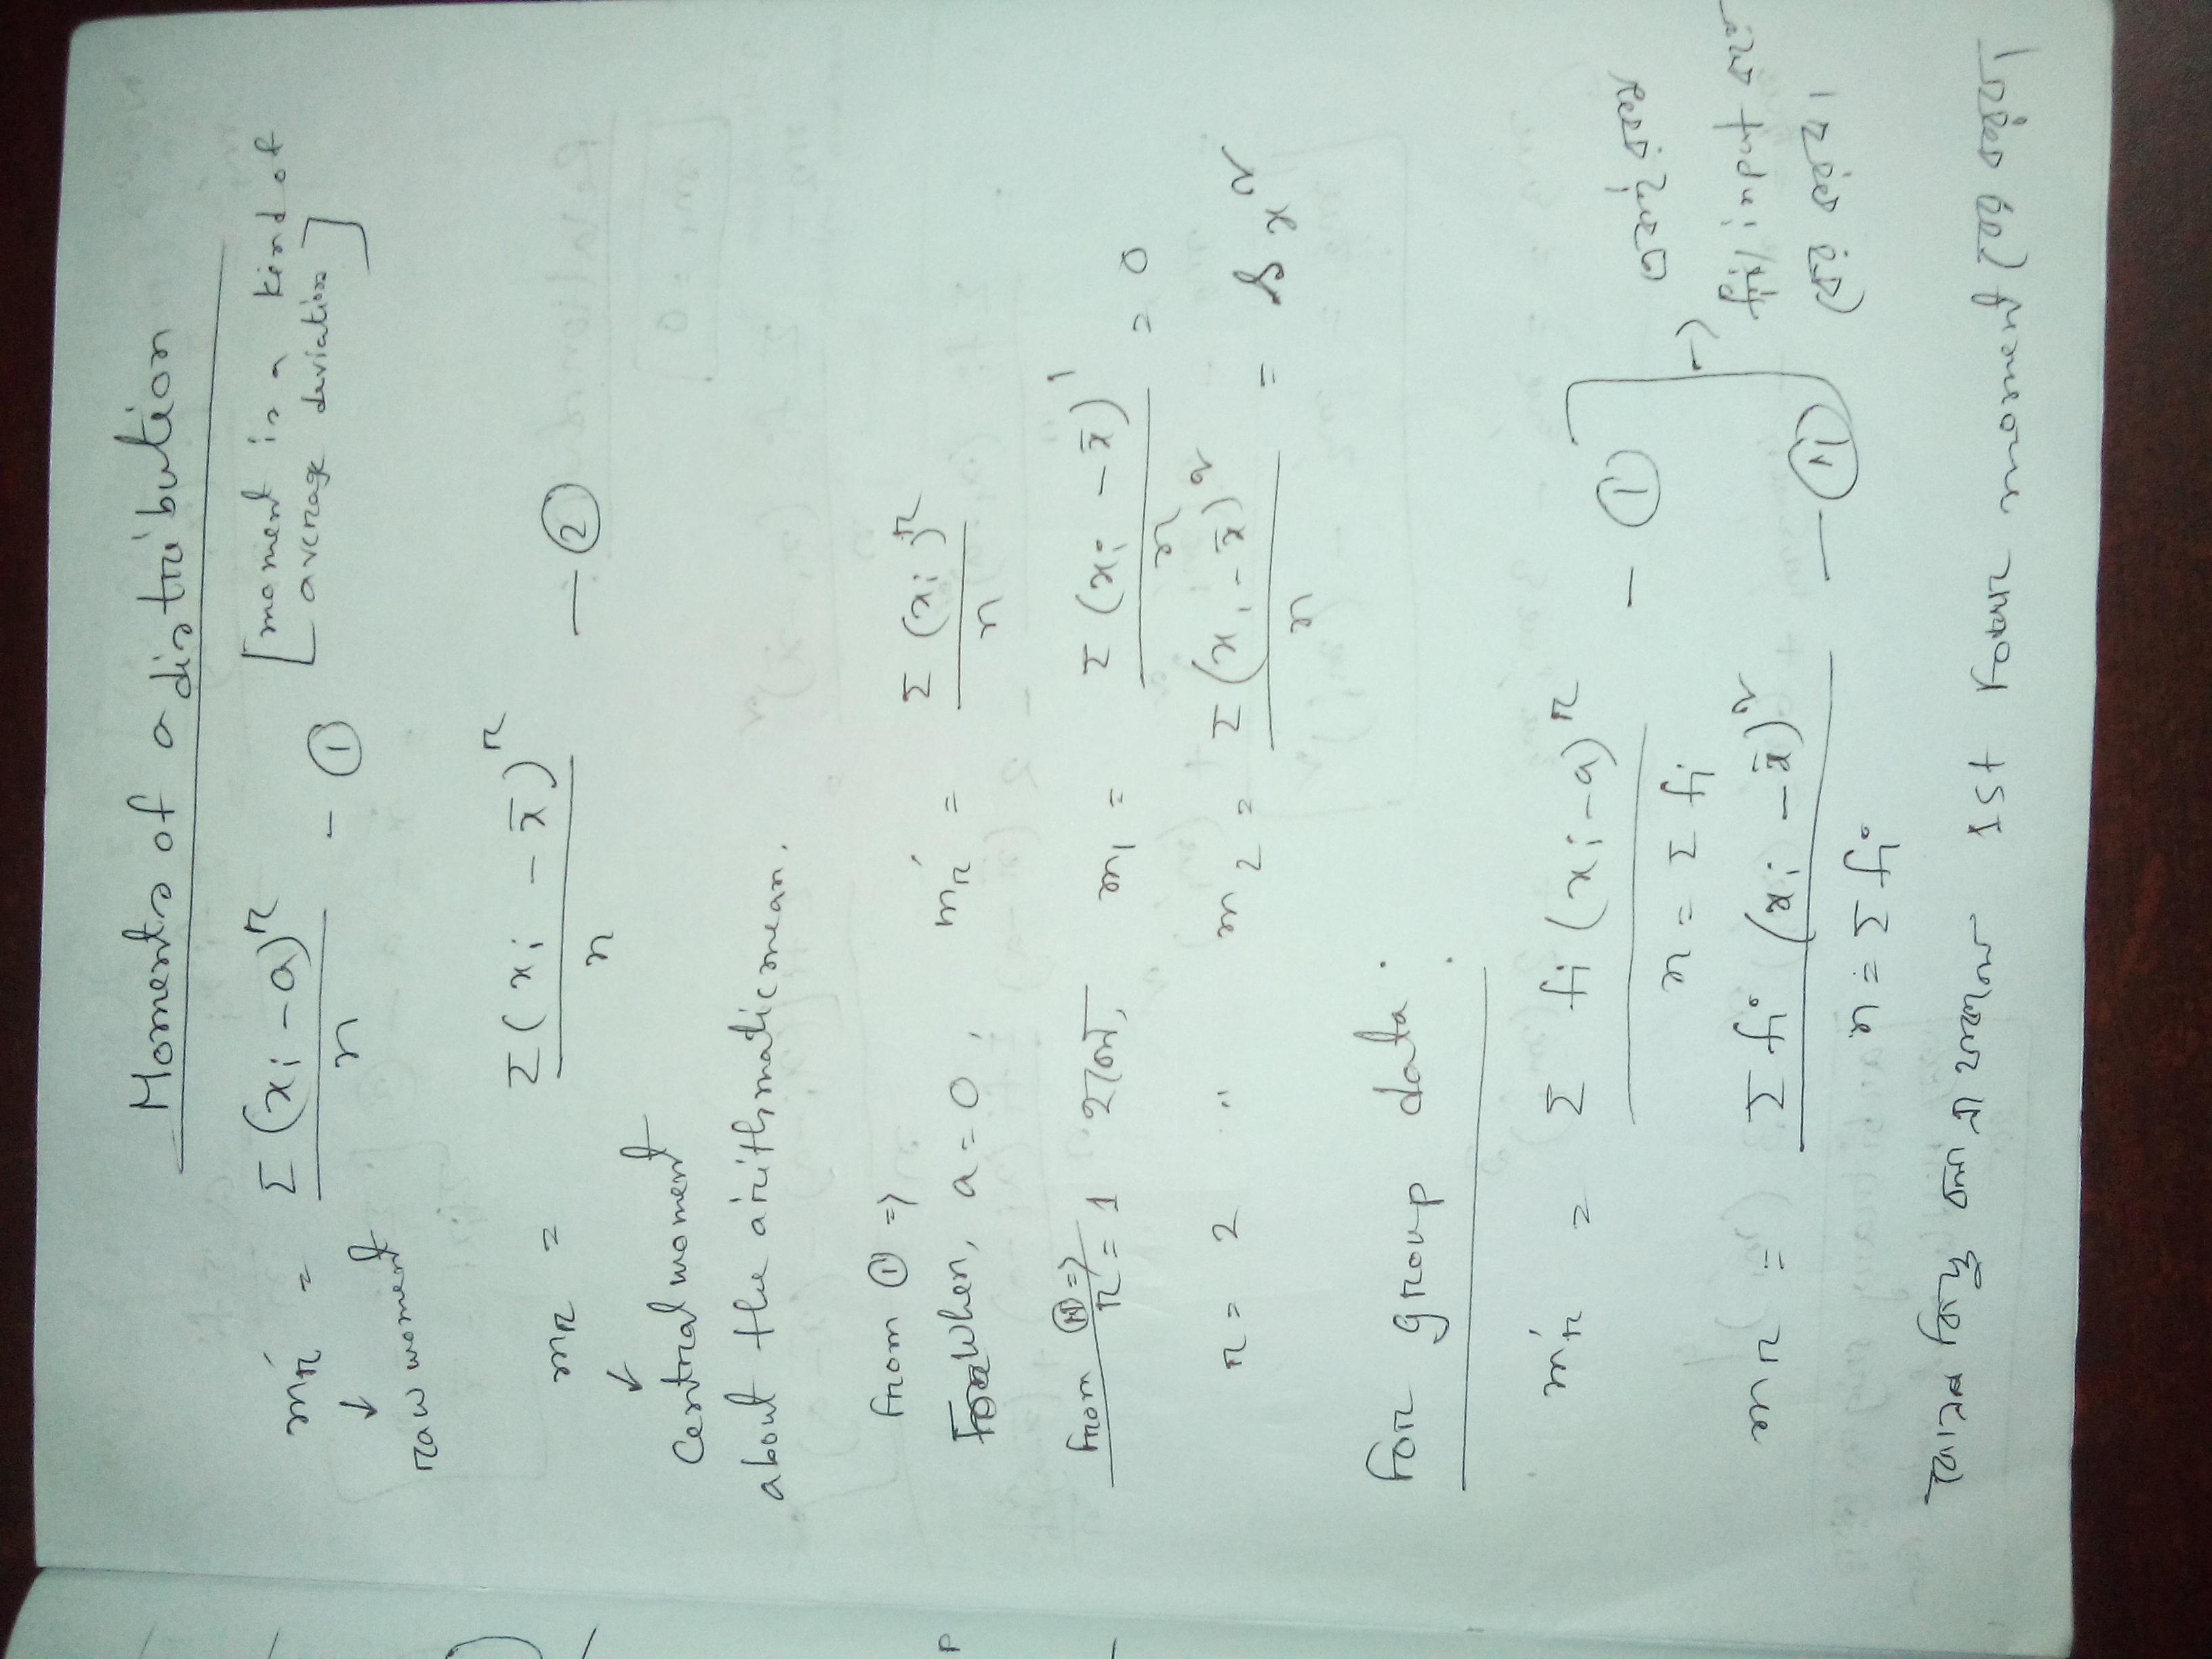 Moments of a distribution
m′r = Σ (xi − a)^r / n − ① [moment is a kind of average deviation]
↓
raw moment
mr = Σ (xi − x̄)^r / n − ②
↓
Central moment
about the arithmatic mean.
From ① ⇒
When, a = 0, m′r = Σ (xi)^r / n
From ⇒
r = 1 হলে, m1 = Σ (xi − x̄)^1 / n = 0
r = 2 " m2 = Σ (xi − x̄)^2 / n =
For group data :
m′r = Σ fi (xi − a)^r / n = Σ fi − ①
mr = Σ fi (xi − x̄)^r / n = Σ fi −
input
কিছু বলা না থাকলে 1st Four moment বের করতে